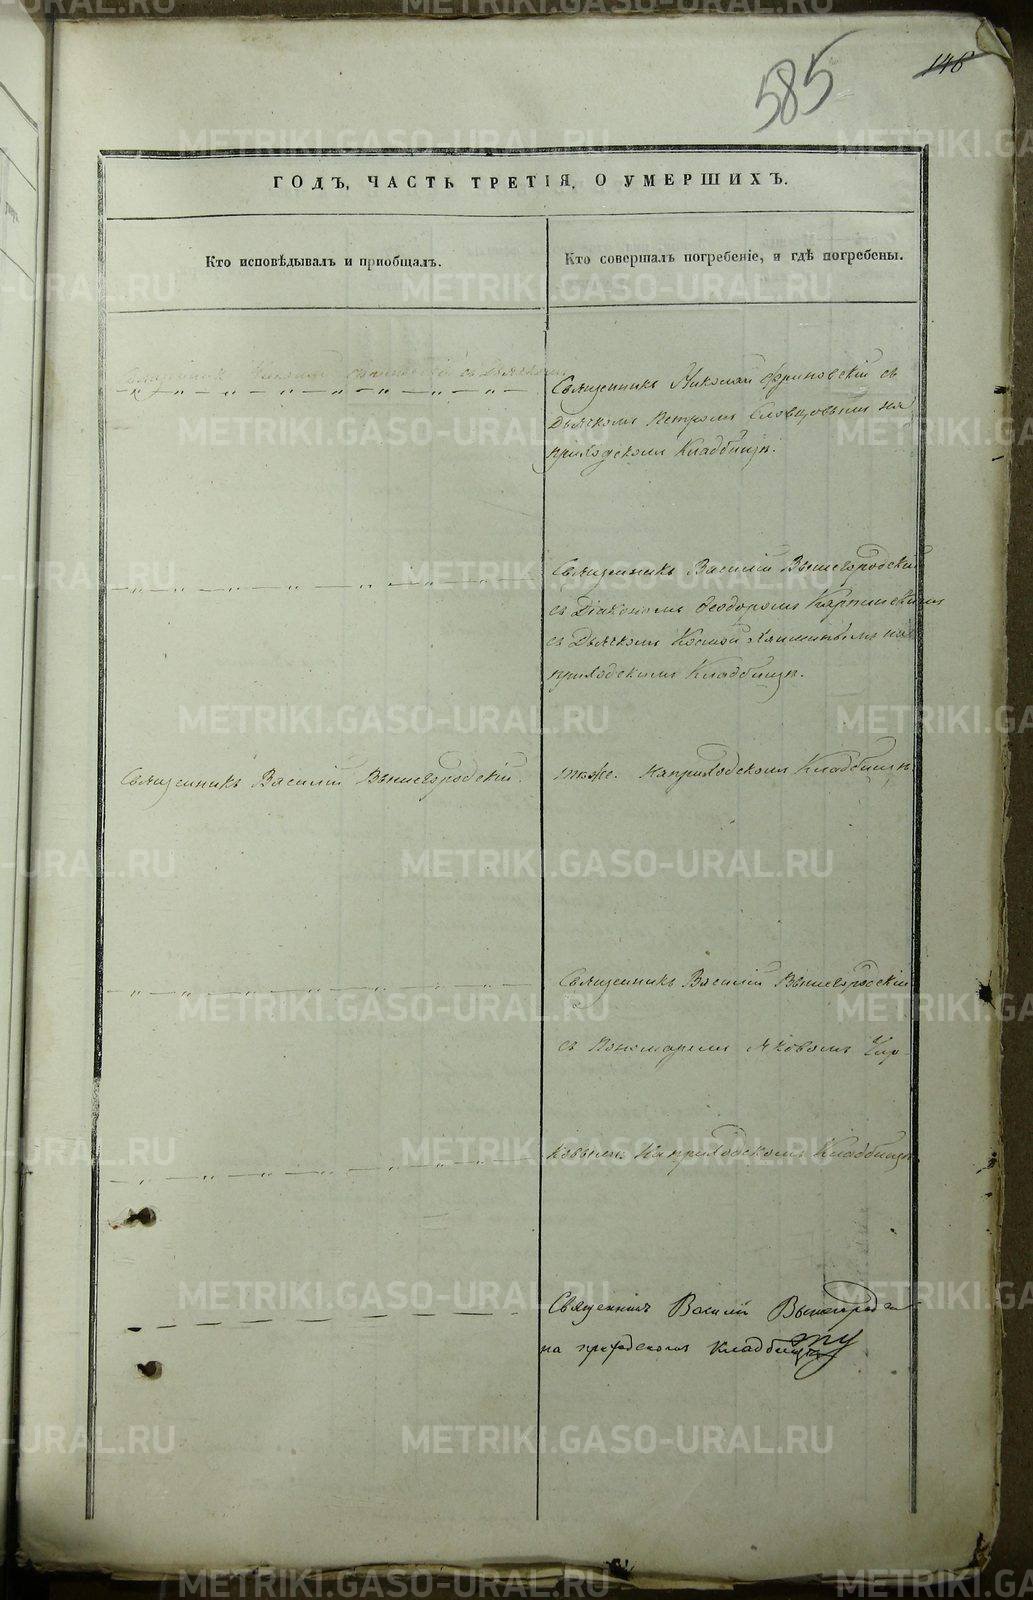 585
146
ГОДЪ, ЧАСТЬ ТРЕТІЯ, О УМЕРШИХЪ.
Кто исповѣдывалъ и пріобщалъ.
Кто совершалъ погребеніе, и гдѣ погребены.
Священникъ Николай съ Дьячкомъ
Священникъ Николай Фриновскій съ
Дьячкомъ Петромъ Словцовымъ на
приходскомъ Кладбищѣ.
Священникъ Василій Вышегородскій
съ Діакономъ Феодоромъ Карпинскимъ
съ Дьячкомъ Космой на
приходскомъ Кладбищѣ.
Священникъ Василій Вышегородскій.
тоже. На приходскомъ Кладбищѣ.
Священникъ Василій Вышегородскій
съ Пономаремъ Яковомъ Чир-
ковымъ На приходскомъ Кладбищѣ.
Священникъ Василій Вышегородс
на приходскомъ Кладбищѣ
METRIKI.GASO-URAL.RU